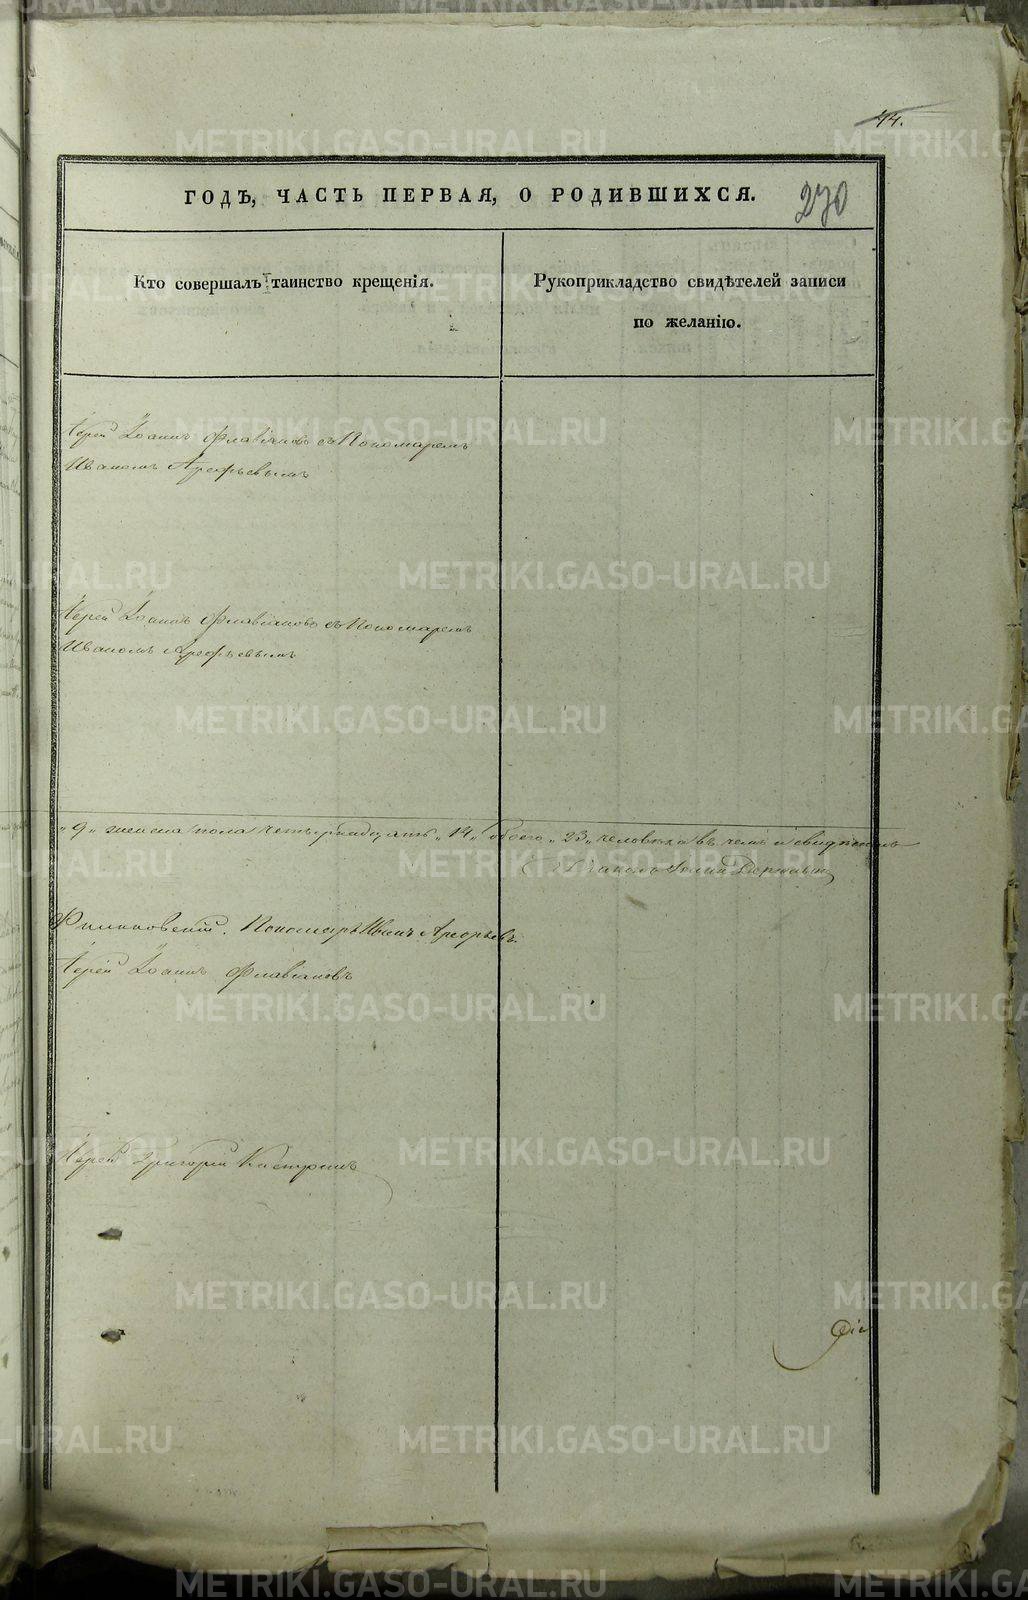 44.
ГОДЪ, ЧАСТЬ ПЕРВАЯ, О РОДИВШИХСЯ.
270
Кто совершалъ таинство крещенія.
Рукоприкладство свидѣтелей записи
по желанію.
Іерей Іоаннъ Флавіановъ съ Пономаремъ
Иваномъ Арефьевымъ
Іерей Іоаннъ Флавіановъ съ Пономаремъ
Иваномъ Арефьевымъ
„9„ женска пола четырнадцать „14„ обоего „23„ человѣка въ чемъ и
Пономарь Иванъ Арефьевъ
Іерей Іоаннъ Флавіановъ
Іерей Григорій
METRIKI.GASO-URAL.RU